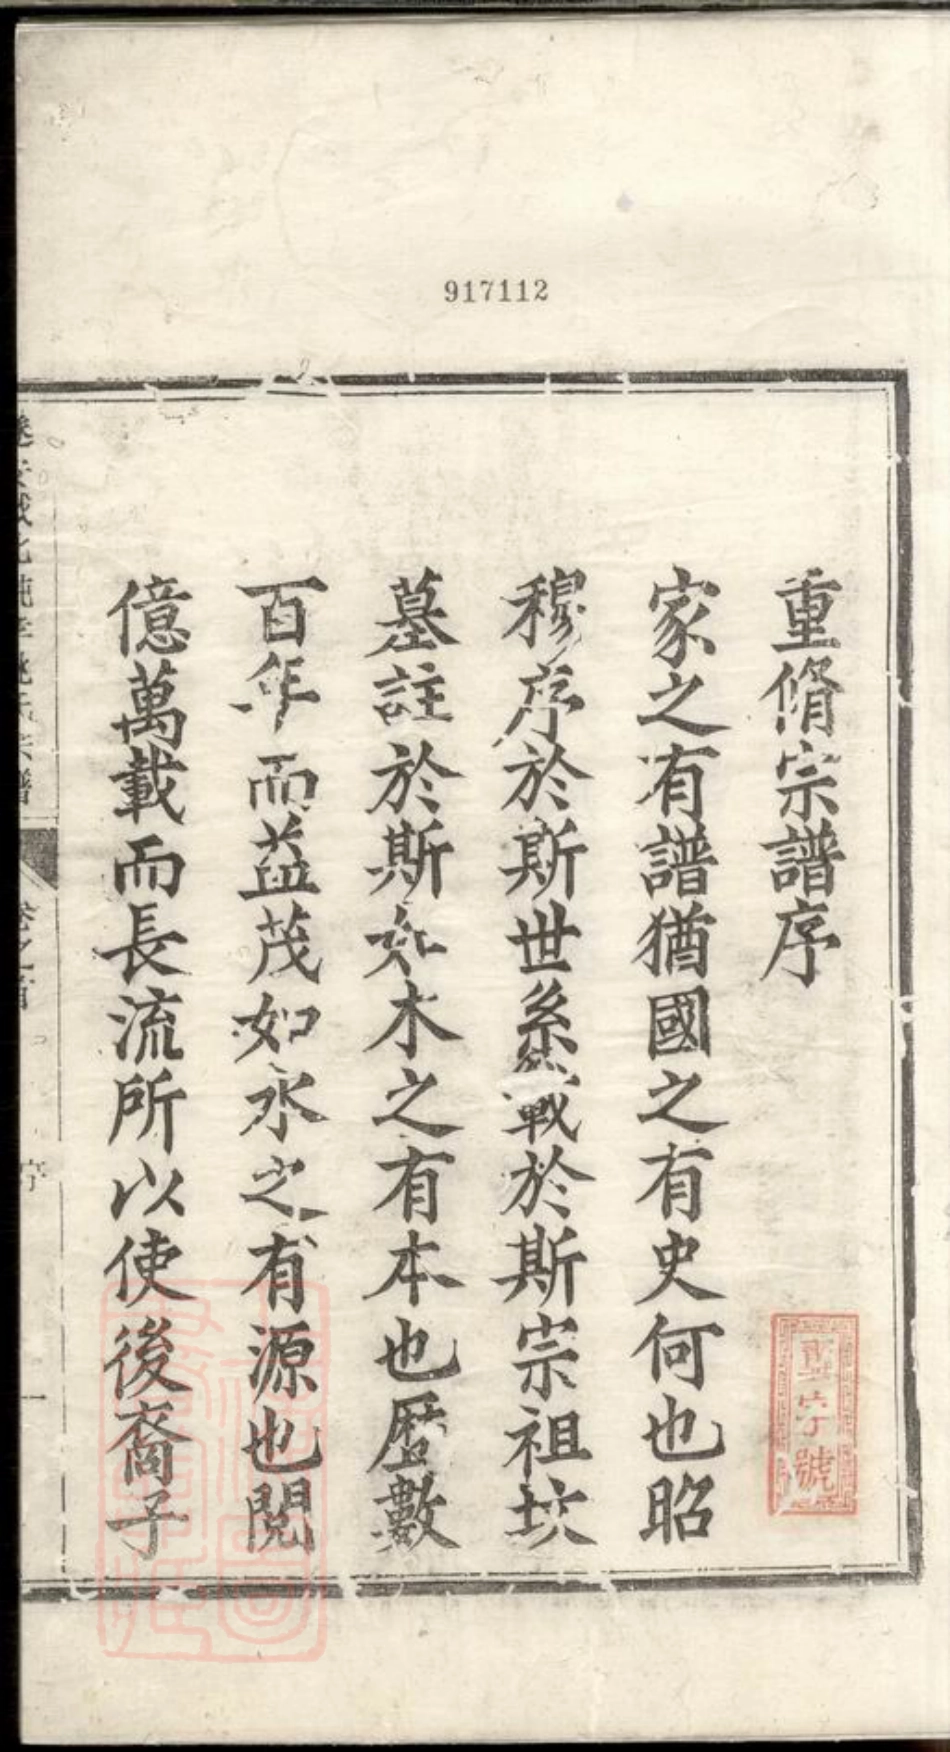 917112
重脩宗譜序
家之有譜猶國之有史何也昭
穆序於斯世系載於斯宗祖坟
墓註於斯如木之有本也歷數
百年而益茂如水之有源也閱
億萬載而長流所以使後裔子
字號
序
一